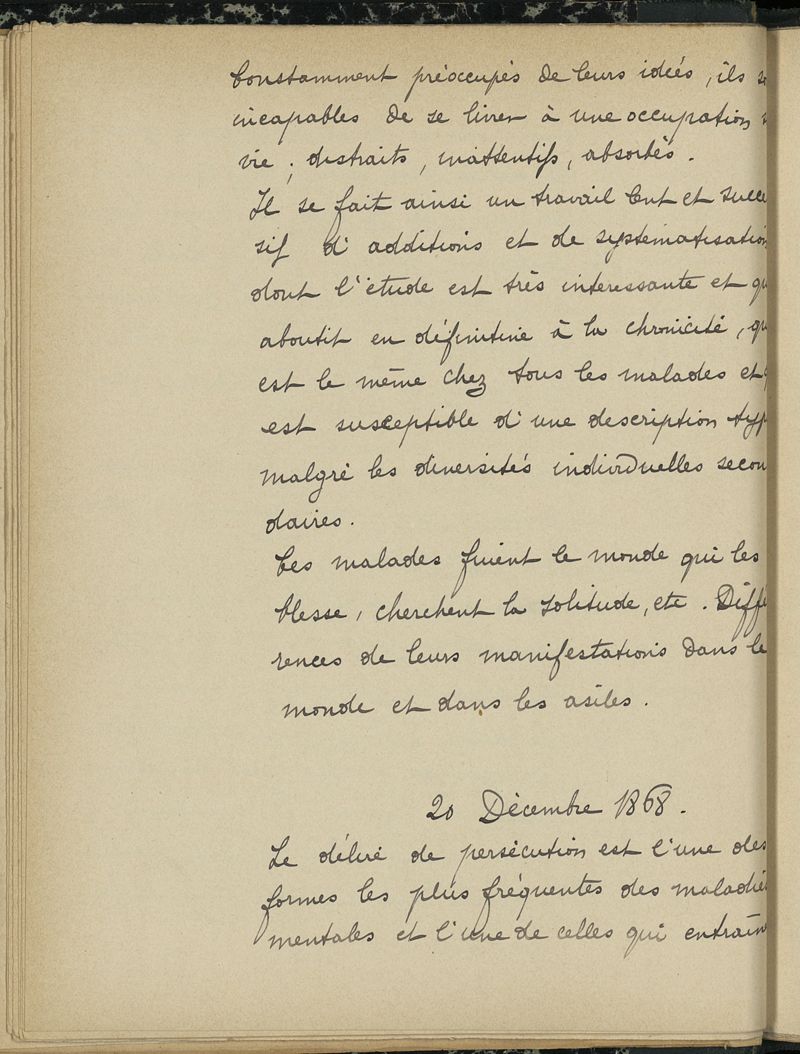 Constamment préoccupés de leurs idées, ils
incapables de se livrer à une occupation
vie ; distraits, inattentifs, absorbés.
Il se fait ainsi un travail lent et succe
sif d'additions et de systématisation
dont l'étude est très intéressante et qu
aboutit en définitive à la chronicité, qu
est le même chez tous les malades et
est susceptible d'une description typ
malgré les diversités individuelles secon
daires.
Ces malades fuient le monde qui les
blesse, cherchent la solitude, etc. Diffé
rences de leurs manifestations dans le
monde et dans les asiles.
20 Décembre 1868.
Le délire de persécution est l'une des
formes les plus fréquentes des maladies
mentales et l'une de celles qui entraîn